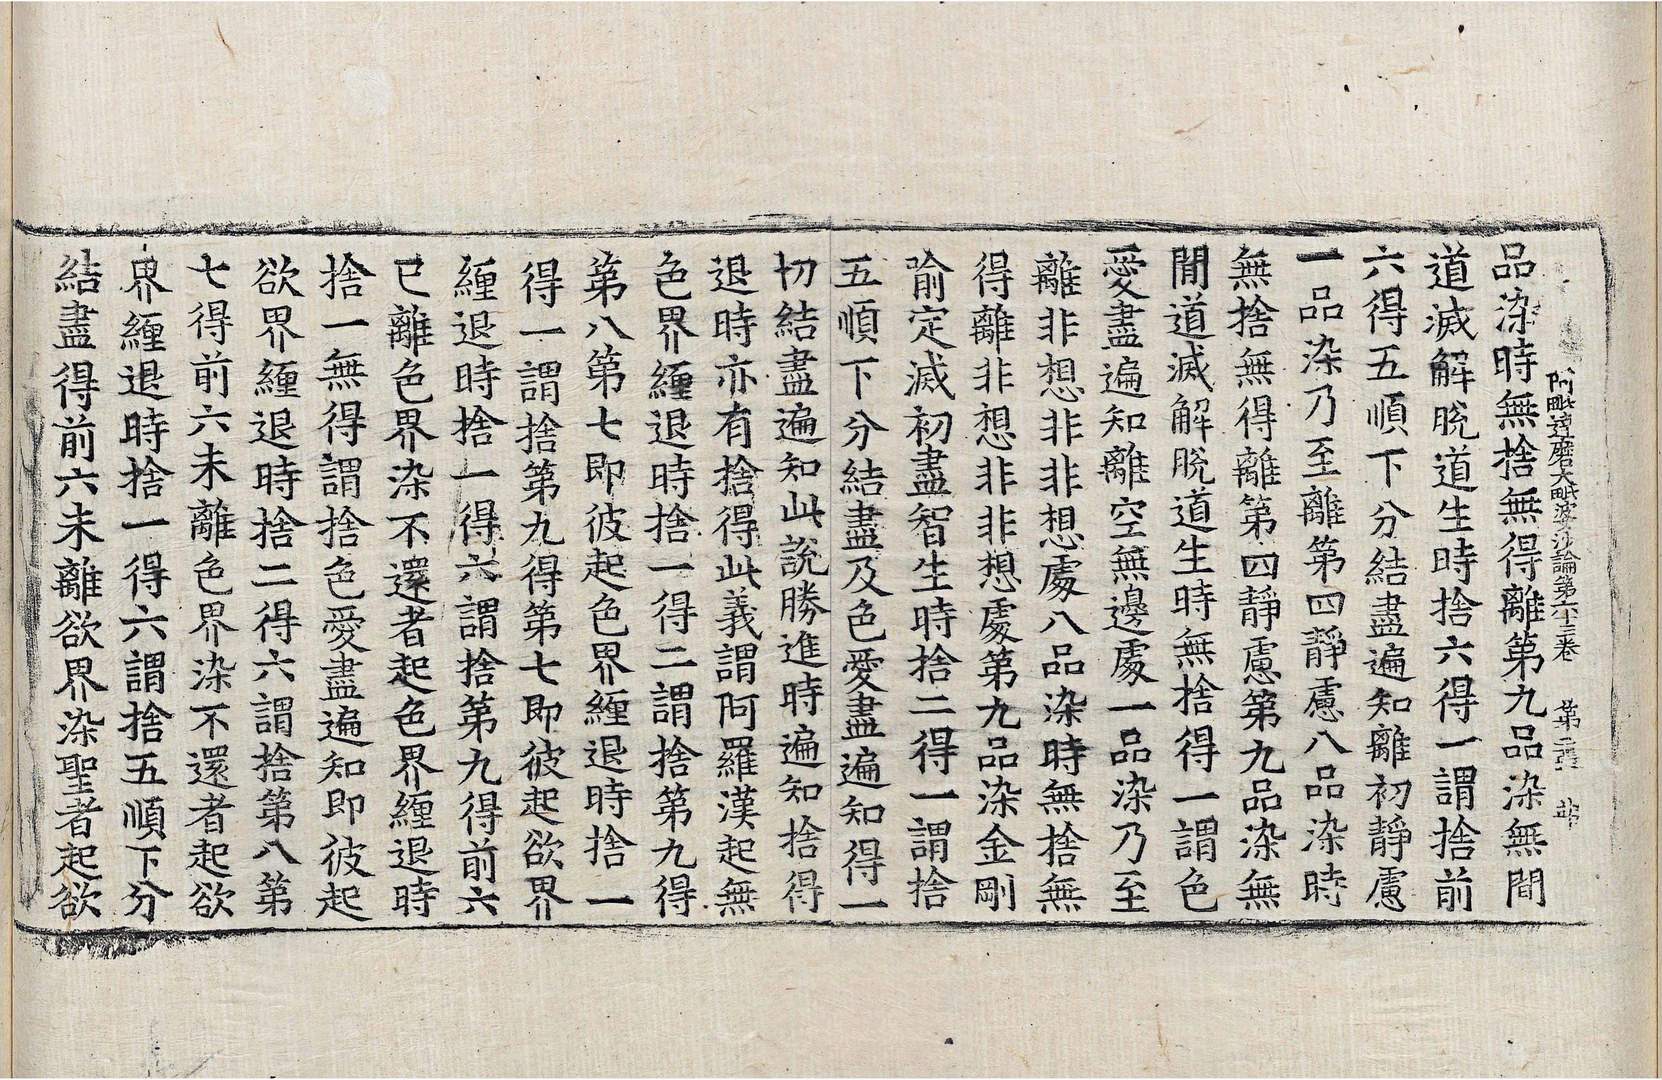 阿毗達磨大毗婆沙論第六十三卷　第二張　並
品染時無捨無得離第九品染無間
道滅解脫道生時捨六得一謂捨前
六得五順下分結盡遍知離初靜慮
一品染乃至離第四靜慮八品染時
無捨無得離第四靜慮第九品染無
間道滅解脫道生時無捨得一謂色
愛盡遍知離空無邊處一品染乃至
離非想非非想處八品染時無捨無
得離非想非非想處第九品染金剛
喻定滅初盡智生時捨二得一謂捨
五順下分結盡及色愛盡遍知得一
切結盡遍知此說勝進時遍知捨得
退時亦有捨得此義謂阿羅漢起無
色界纏退時捨一得二謂捨第九得
第八第七即彼起色界纏退時捨一
得一謂捨第九得第七即彼起欲界
纏退時捨一得六謂捨第九得前六
已離色界染不還者起色界纏退時
捨一無得謂捨色愛盡遍知即彼起
欲界纏退時捨二得六謂捨第八第
七得前六未離色界染不還者起欲
界纏退時捨一得六謂捨五順下分
結盡得前六未離欲界染聖者起欲